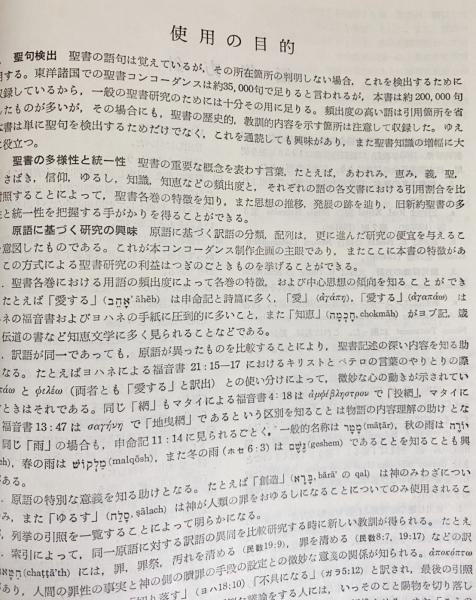 使用の目的
聖句検出 聖書の語句は覚えているが,その所在箇所の判明しない場合, これを検出するために
用する。東洋諸国での聖書コンコーダンスは約35,000句で足りると言われるが,本書は約200,000句
収録しているから,一般の聖書研究のためには十分その用に足りる。頻出度の高い語は引用箇所を省
したものが多いが,その場合にも,聖書の歴史的,教訓的内容を示す箇所は注意して収録した。ゆえ
書は単に聖句を検出するためだけでなく,これを通読しても興味があり,また聖書知識の増幅に大
に役立つ。
聖書の多様性と統一性 聖書の重要な概念を表わす言葉,たとえば,あわれみ,恵み,義,聖,
さばき,信仰,ゆるし,知識,知恵などの頻出度と,それぞれの語の各文書における引用割合を比
対照することによって,聖書各巻の特徴を知り,また思想の推移,発展の跡を辿り,旧新約聖書の多
性と統一性を把握する手がかりを得ることができる。
原語に基づく研究の興味 原語に基づく訳語の分類,配列は,更に進んだ研究の便宜を与えるこ
を意図したものである。これが本コンコーダンス制作企画の主眼であり,またここに本書の特徴があ
この方式による聖書研究の利益はつぎのごときものを挙げることができる。
. 聖書各巻における用語の頻出度によって各巻の特徴,および中心思想の傾向を知ることができ
たとえば「愛する」(אָהֵב āhēb) は申命記と詩篇に多く,「愛」(ἀγάπη),「愛する」(ἀγαπάω) は
ネの福音書およびヨハネの手紙に圧倒的に多いこと,また「知恵」(חָכְמָה, chokmāh) がヨブ記,箴
伝道の書など知恵文学に多く見られることなどである。
. 訳語が同一であっても,原語が異ったものを比較することにより,聖書記述の深い内容を知る助
なる。たとえばヨハネによる福音書 21:15-17 におけるキリストとペテロの言葉のやりとりの際
πάω と φιλέω (両者とも「愛する」と訳出) との使い分けによって,微妙な心の動きが示されてい
ときはそれである。同じ「網」もマタイによる福音書 4:18 は ἀμφίβληστρον で「投網」,マタイに
福音書 13:47 は σαγήνη で「地曳網」であるという区別を知ることは物語の内容理解の助けとな
同じ「雨」の場合も,申命記 11:14 に見られるごとく,一般的名称は מָטָר (māṭār),秋の雨は יוֹרֶה
eh), 春の雨は מַלְקוֹשׁ (malqōsh),また冬の雨 (ホセ 6:3) は גֶּשֶׁם (geshem) であることを知ることも興
ある。
. 原語の特別な意義を知る助けとなる。たとえば「創造」(בָּרָא, bārā' の qal) は神のみわざについ
み,また「ゆるす」(סָלַח, ṣālach) は神が人類の罪をゆるしになることについてのみ使用されるこ
が,列挙の引照を一覧することによって明らかになる。
. 索引によって,同一原語に対する訳語の異同を比較研究する時に新しい教訓が得られる。たとえ
(chaṭṭā'th) には,罪,罪祭,汚れを清める (民数19:9),罪を清める (民数8:7, 19:17) などの訳
あり,人間の罪性の事実と神の側の贖罪の手段の設定との微妙な意義の関係が知られる。ἀποκόπτω
「切り落す」(ヨハ18:10)「不具になる」(ガラ5:12) と訳され,最後の引照
する人には,いっそのこと陽物を切り落し